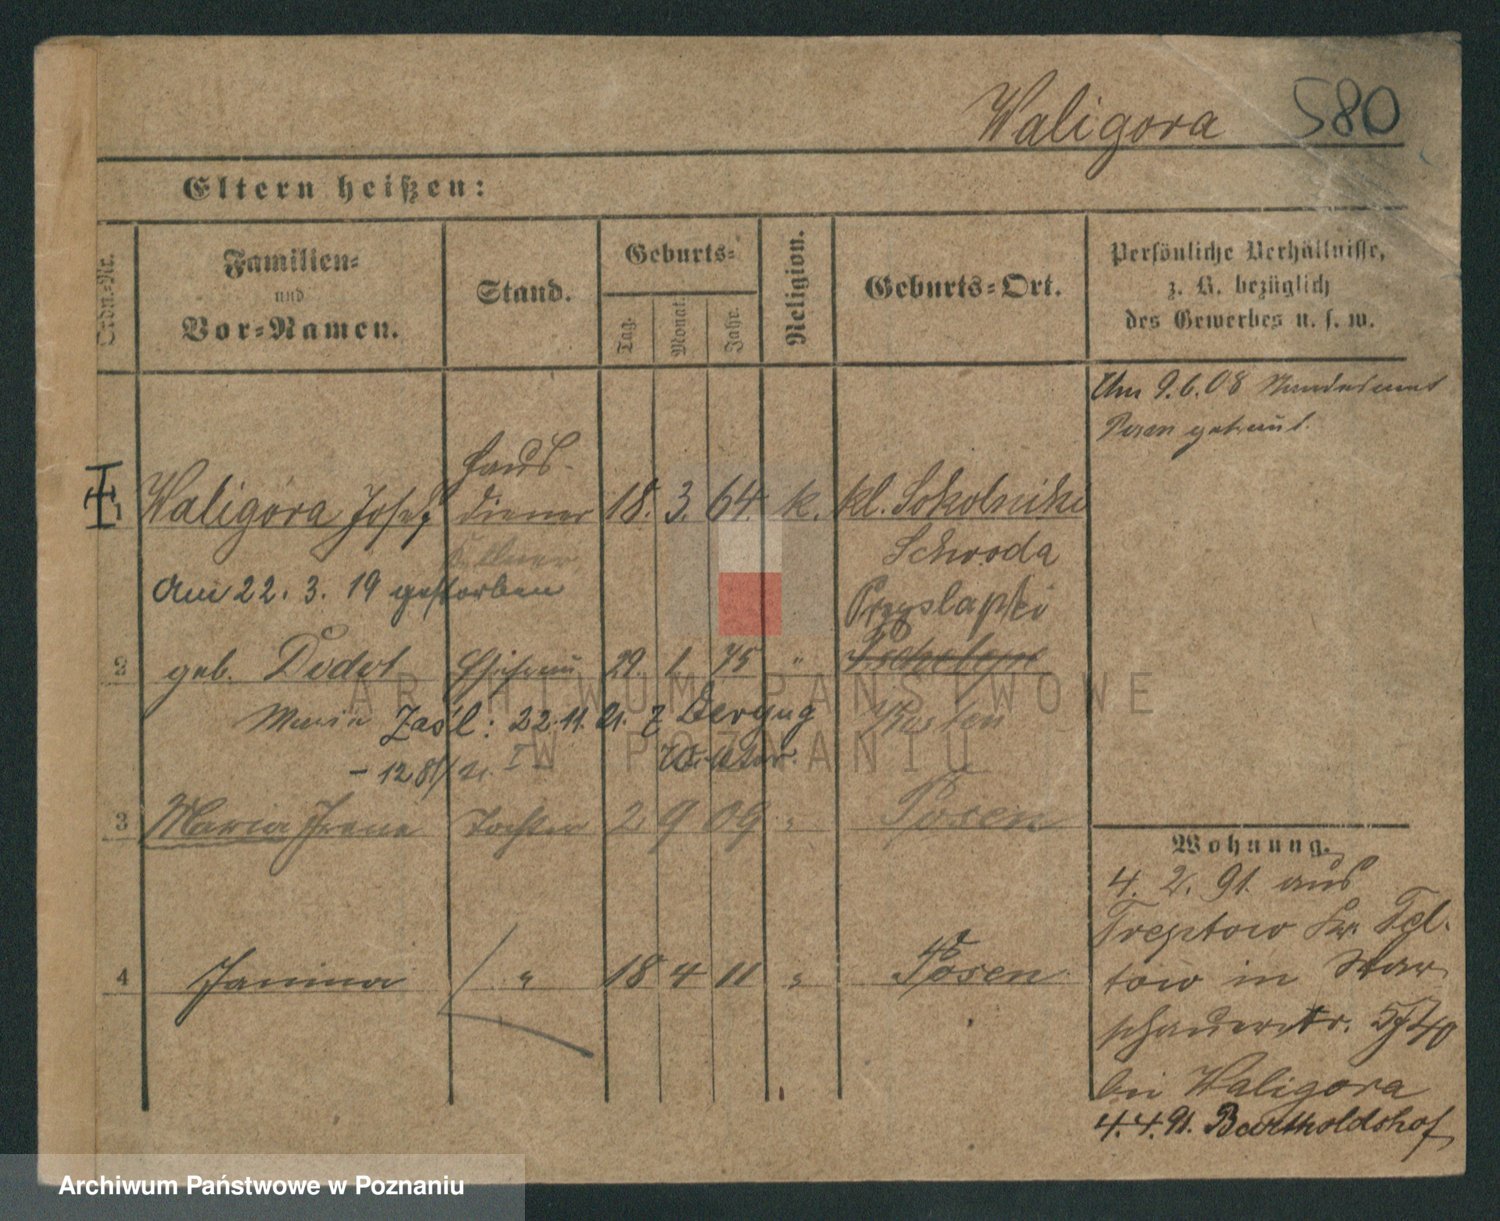 Waligora 580
Eltern heißen:
Ordn.-Nr.
Familien-
und
Vor-Namen.
Stand.
Geburts-
Tag.
Monat.
Jahr.
Religion.
Geburts-Ort.
Persönliche Verhältnisse,
z. B. bezüglich
des Gewerbes u. s. w.
Am 9.6.08 Standesamt
Posen getraut.
Haus-
1 Waligóra Josef diener 18. 3. 64. k. kl. Sokolniki
Schroda
Am 22. 3. 19 gestorben
Przyslapki
2 geb. Dudot Ehefrau 29. 1. 75 "
Maria Zaśl: 22.11.21. z
Kosten
3 Maria Irene Tochter 2 9 09 " Posen
4 Janina " 18 4 11 " Posen
Wohnung.
4. 2. 91. aus
Treptow Kr. Tel-
tow in War-
schauerstr. 57/40
bei Waligora
4.4.91. Bartholdshof
ARCHIWUM PAŃSTWOWE
W POZNANIU
Archiwum Państwowe w Poznaniu